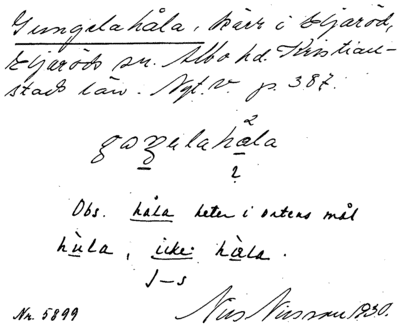 Gungelahåla, kärr i Eljaröd,
Eljaröds sn. Albo hd. Kristian-
stads län. Ngl. V. p. 387.
2
ela håla
?
Obs. håla heter i ortens mål
hùla, icke: håla.
J—s
Nr. 5899 Nils Nilsson 1930.